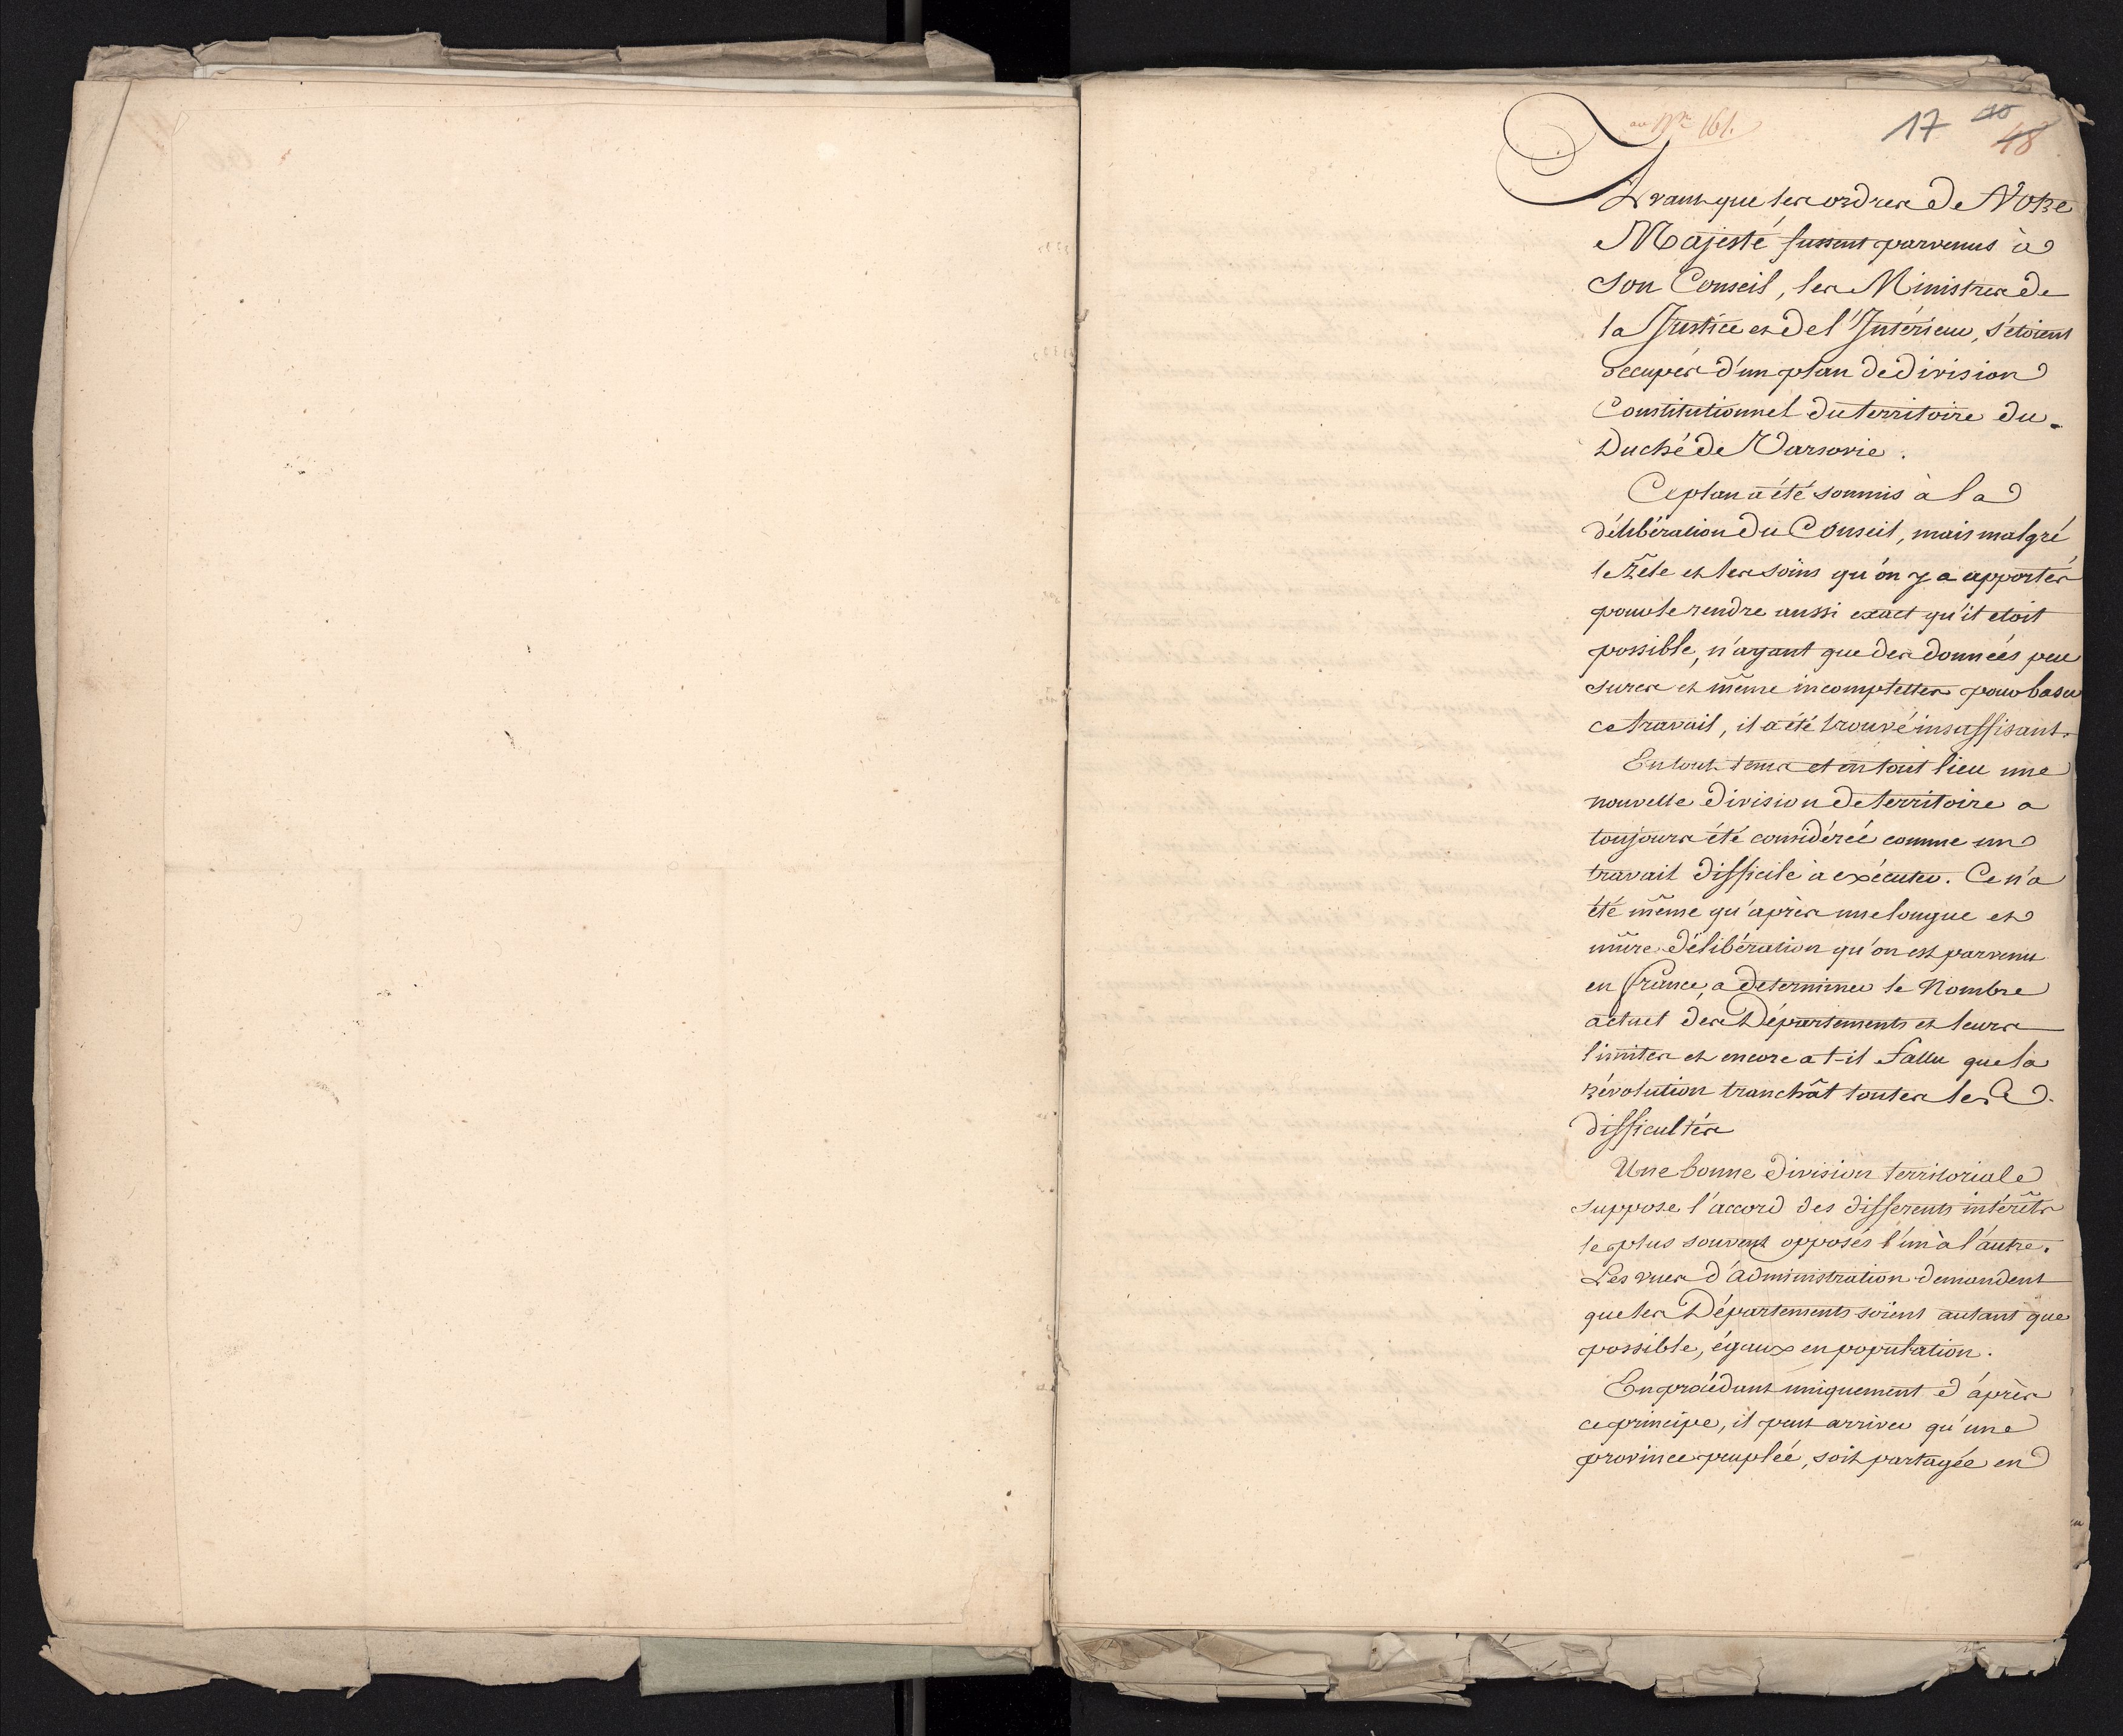 au Nr. 161.
17 40 48
Avant que les ordres de Votre
Majesté fussent parvenus à
Son Conseil, les Ministres de
la Justice et de l'Intérieur, s'étoient
occupés d'un plan de division
Constitutionnel du territoire du
Duché de Varsovie.
Ce plan a été soumis à la
délibération du Conseil, mais malgré
le Zèle et les soins qu'on y a apportés
pour le rendre aussi exact qu'il etoit
possible, n'ayant que des données peu
sures et même incomplettes pour baser
ce travail, il a été trouvé insuffisant.
En tout tems et en tout lieu une
nouvelle division de territoire a
toujours été considérée comme un
travail difficile à exécuter. Ce n'a
été même qu'après une longue et
mûre délibération qu'on est parvenu
en france, a determiner le Nombre
actuel des Départements et leurs
limites et encore a t-il fallu que la
révolution tranchât toutes les
difficultés
Une bonne division territoriale
suppose l'accord des differents intérêts
le plus souvent opposés l'un à l'autre.
Les vues d'administration demandent
que les Départements soient autant que
possible, égaux en population.
En procédant uniquement d'après
ce principe, il peut arriver qu'une
province peuplée, soit partagée en